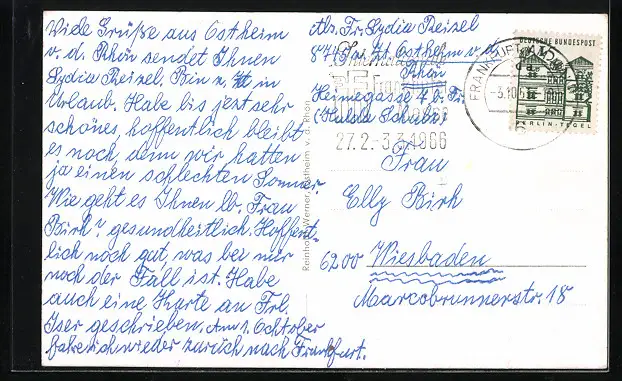 Viele Grüße aus Ostheim
v. d. Rhön sendet Ihnen
Lydia Reizel. Bin z. Zt in
Urlaub. Habe bis jetzt sehr
schönes, hoffentlich bleibt
es noch, denn wir hatten
ja einen schlechten Sommer.
Wie geht es Ihnen lb. Frau
Birk? gesundheitlich. Hoffent-
lich noch gut, was bei mir
noch der Fall ist. Habe
auch eine Karte an Frl.
Iser geschrieben. Am 1. Ochtober
fahre ich wieder zurück nach Frankfurt.
Abs. Fr. Lydia Reizel
87 z. Zt Ostheim v. d.
Rhön
Heinegasse 4 b. Fr.
(Hulda Schuba)
27.2.-3.3.1966
FRANKFURT
-3.10.6
DEUTSCHE BUNDESPOST
BERLIN-TEGEL
Reinhold Werner, Ostheim v. d. Rhön
Frau
Elly Birk
6200 Wiesbaden
Marcobrunnerstr. 18